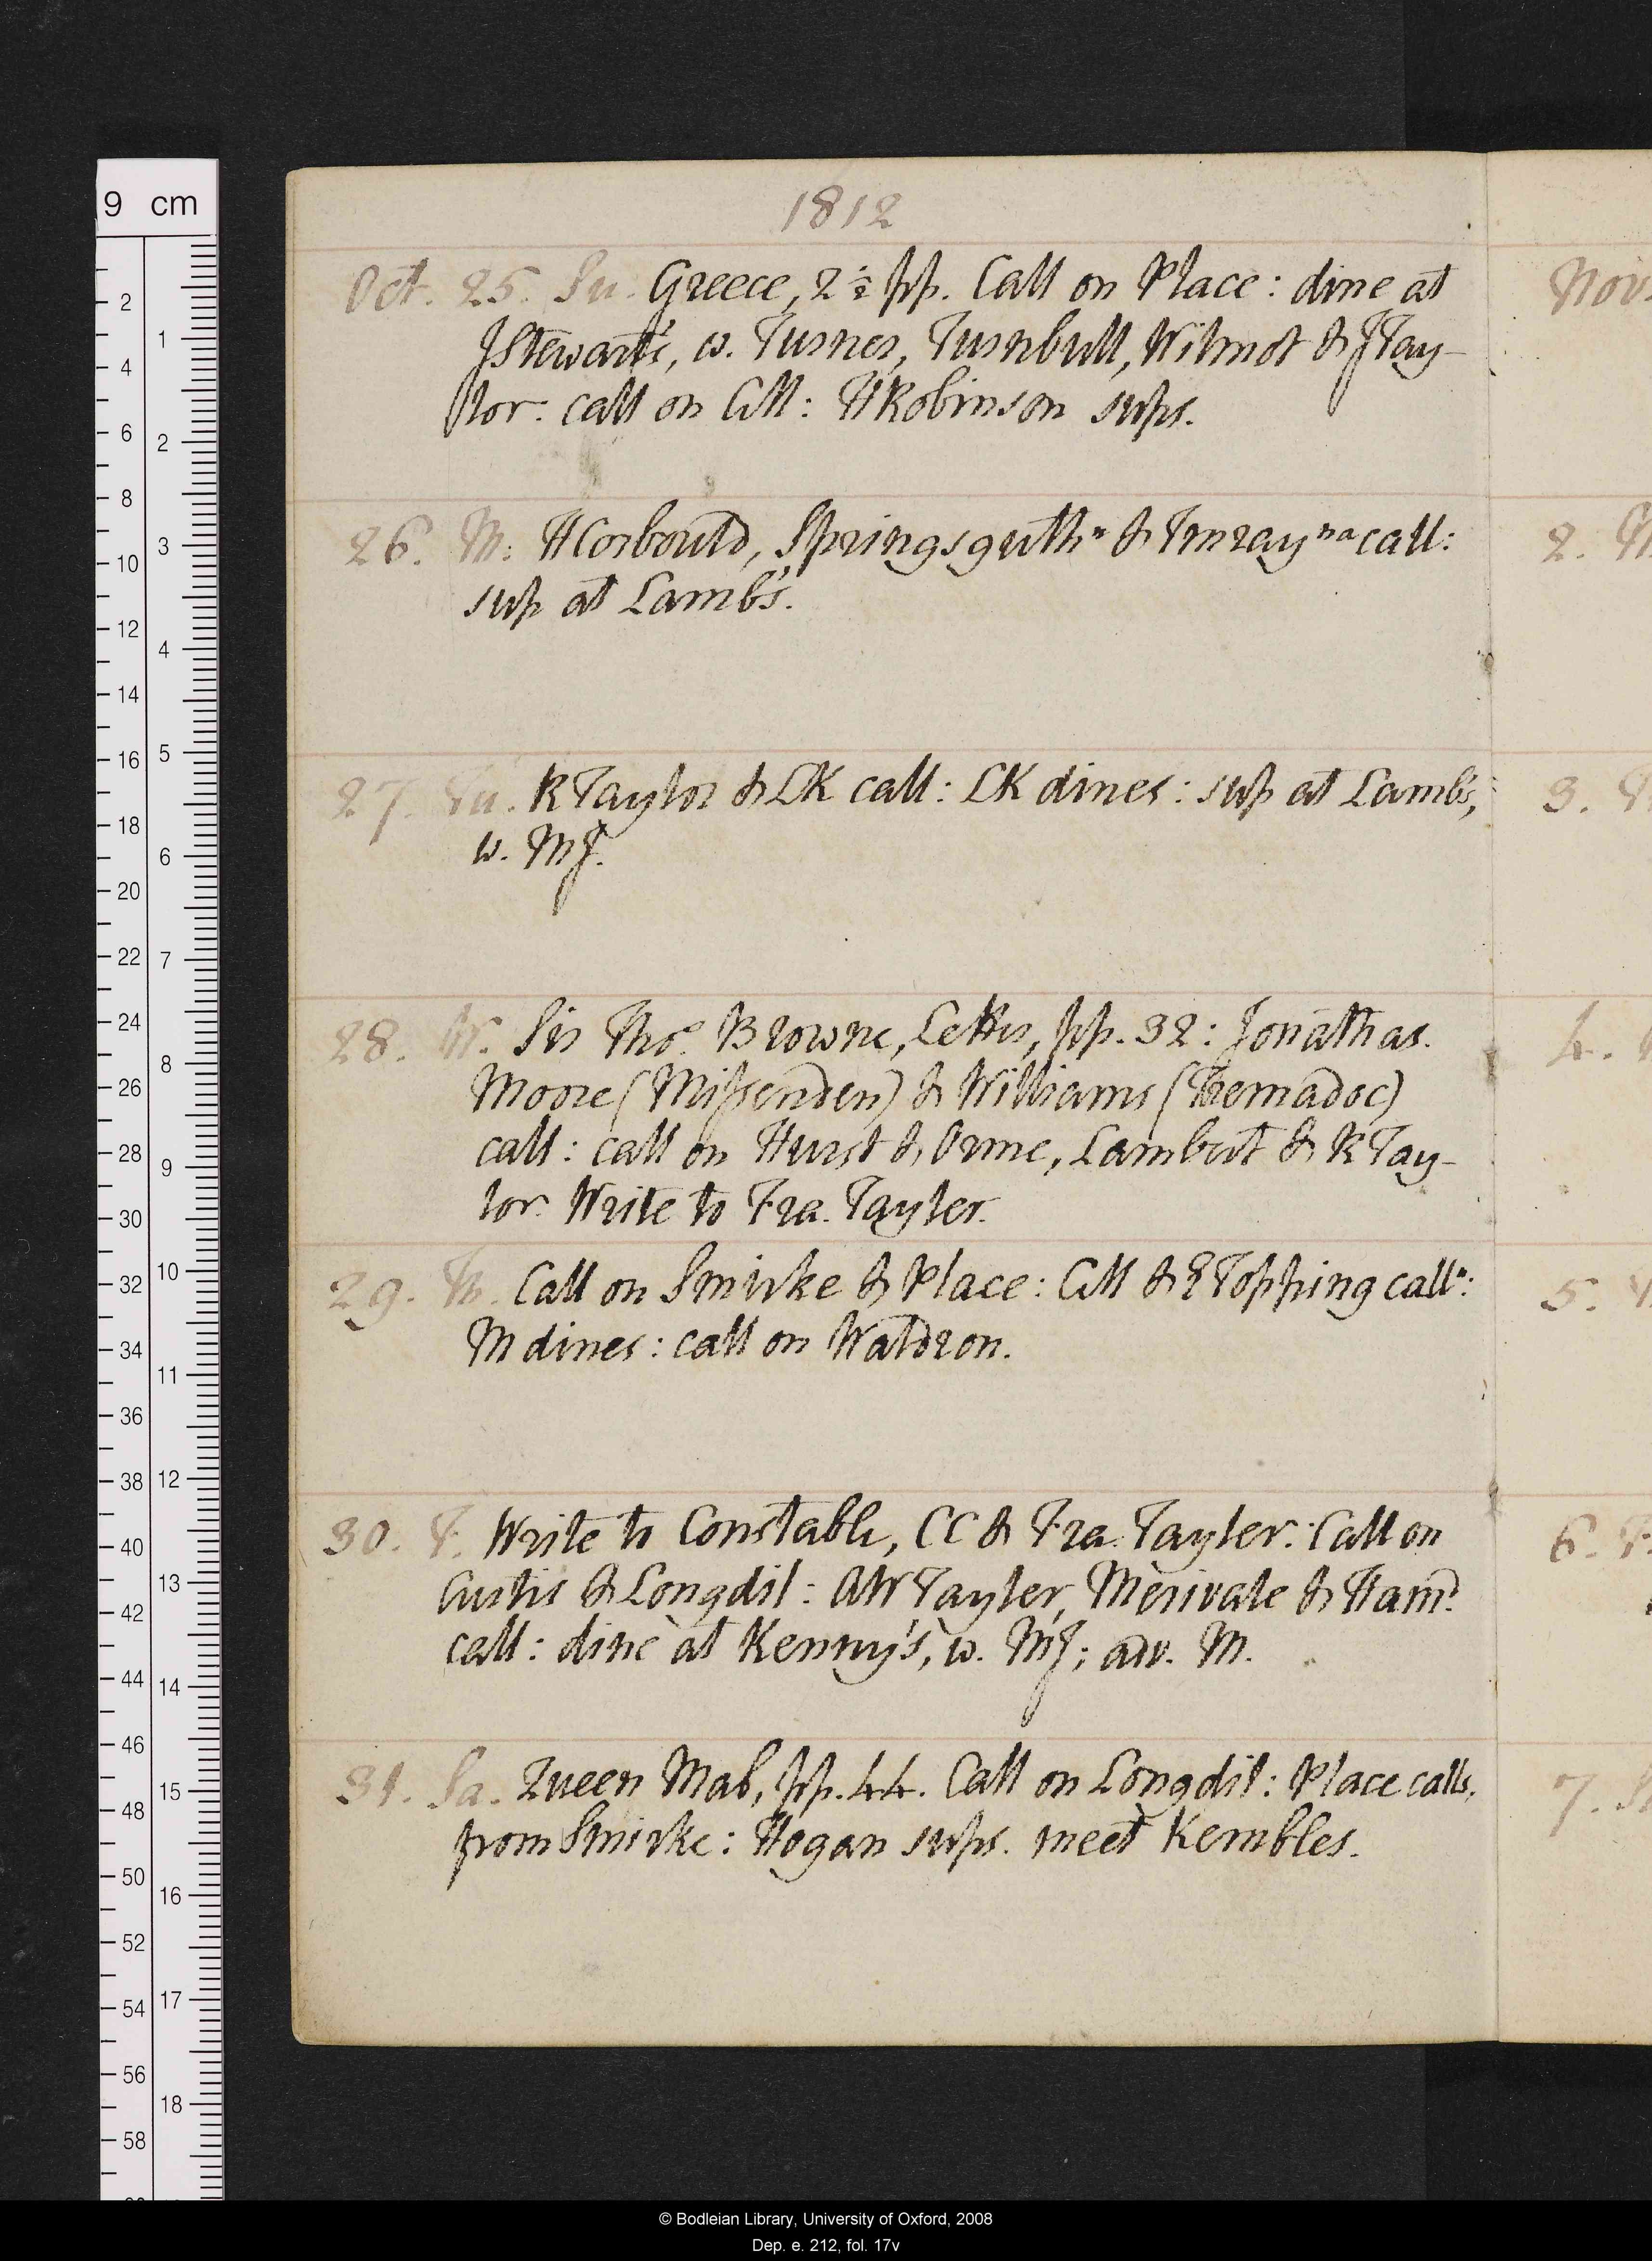 1812
Oct. 25. Su. Greece, 2½ pp. Call on Place: dine at
JStewart's, w. Turner, Turnbull, Wilmot & JTay-
lor: call on CM: HRobinson sups.
26. M. HCorbould, Springsguth n & Imray na call:
sup at Lamb's.
27. Tu. RTaylor & LK call: LK dines: sup at Lamb's,
w. MJ.
28. W. Sir Tho.s Browne, Letters, pp. 32: Jonathas.
Moore (Missenden) & Williams (Tremadoc)
call: call on Hurst & Orme, Lambert & RTay-
lor. Write to Fra. Tayler.
29. Th. Call on Smirke & Place: CM & ETopping call n:
M dines: call on Waldron.
30. F. Write to Constable, CC & Fra. Tayler. Call on
Curtis & Longdil: AW Tayler, Merivale & Ham.d
call: dine at Kenny's, w. MJ; adv. M.
31. Sa. Queen Mab, pp. 44. Call on Longdil: Place calls,
from Smirke: Hogan sups. meet Kembles.
Nov.
2.
3.
4.
5.
6. F.
7.
9 cm
2
4
6
8
10
12
14
16
18
20
22
24
26
28
30
32
34
36
38
40
42
44
46
48
50
52
54
56
58
1
2
3
4
5
6
7
8
9
10
11
12
13
14
15
16
17
18
© Bodleian Library, University of Oxford, 2008
Dep. e. 212, fol. 17v